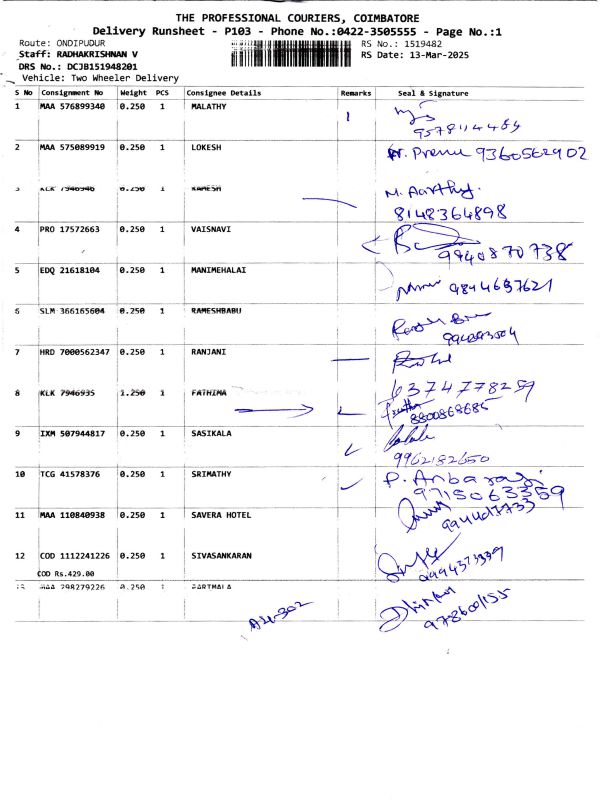 THE PROFESSIONAL COURIERS, COIMBATORE
Delivery Runsheet - P103 - Phone No.:0422-3505555 - Page No.:1
Route: ONDIPUDUR RS No.: 1519482
Staff: RADHAKRISHNAN V RS Date: 13-Mar-2025
DRS No.: DCJB151948201
Vehicle: Two Wheeler Delivery
S No Consignment No Weight PCS Consignee Details Remarks Seal & Signature
1 MAA 576899340 0.250 1 MALATHY
2 MAA 575089919 0.250 1 LOKESH Prema 9360562902
3 KLK 7946946 0.250 1 RAMESH M. Aarthy.
8148364898
4 PRO 17572663 0.250 1 VAISNAVI
9940870738
5 EDQ 21618104 0.250 1 MANIMEHALAI
9844637621
6 SLM 366165604 0.250 1 RAMESHBABU
7 HRD 7000562347 0.250 1 RANJANI
8 KLK 7946935 1.250 1 FATHIMA 6374778259
8800868685
9 IXM 507944817 0.250 1 SASIKALA
9962182650
10 TCG 41578376 0.250 1 SRIMATHY P. Anbarasi
9715063359
11 MAA 110840938 0.250 1 SAVERA HOTEL
12 COD 1112241226 0.250 1 SIVASANKARAN
COD Rs.429.00
13 MAA 298279226 0.250 1